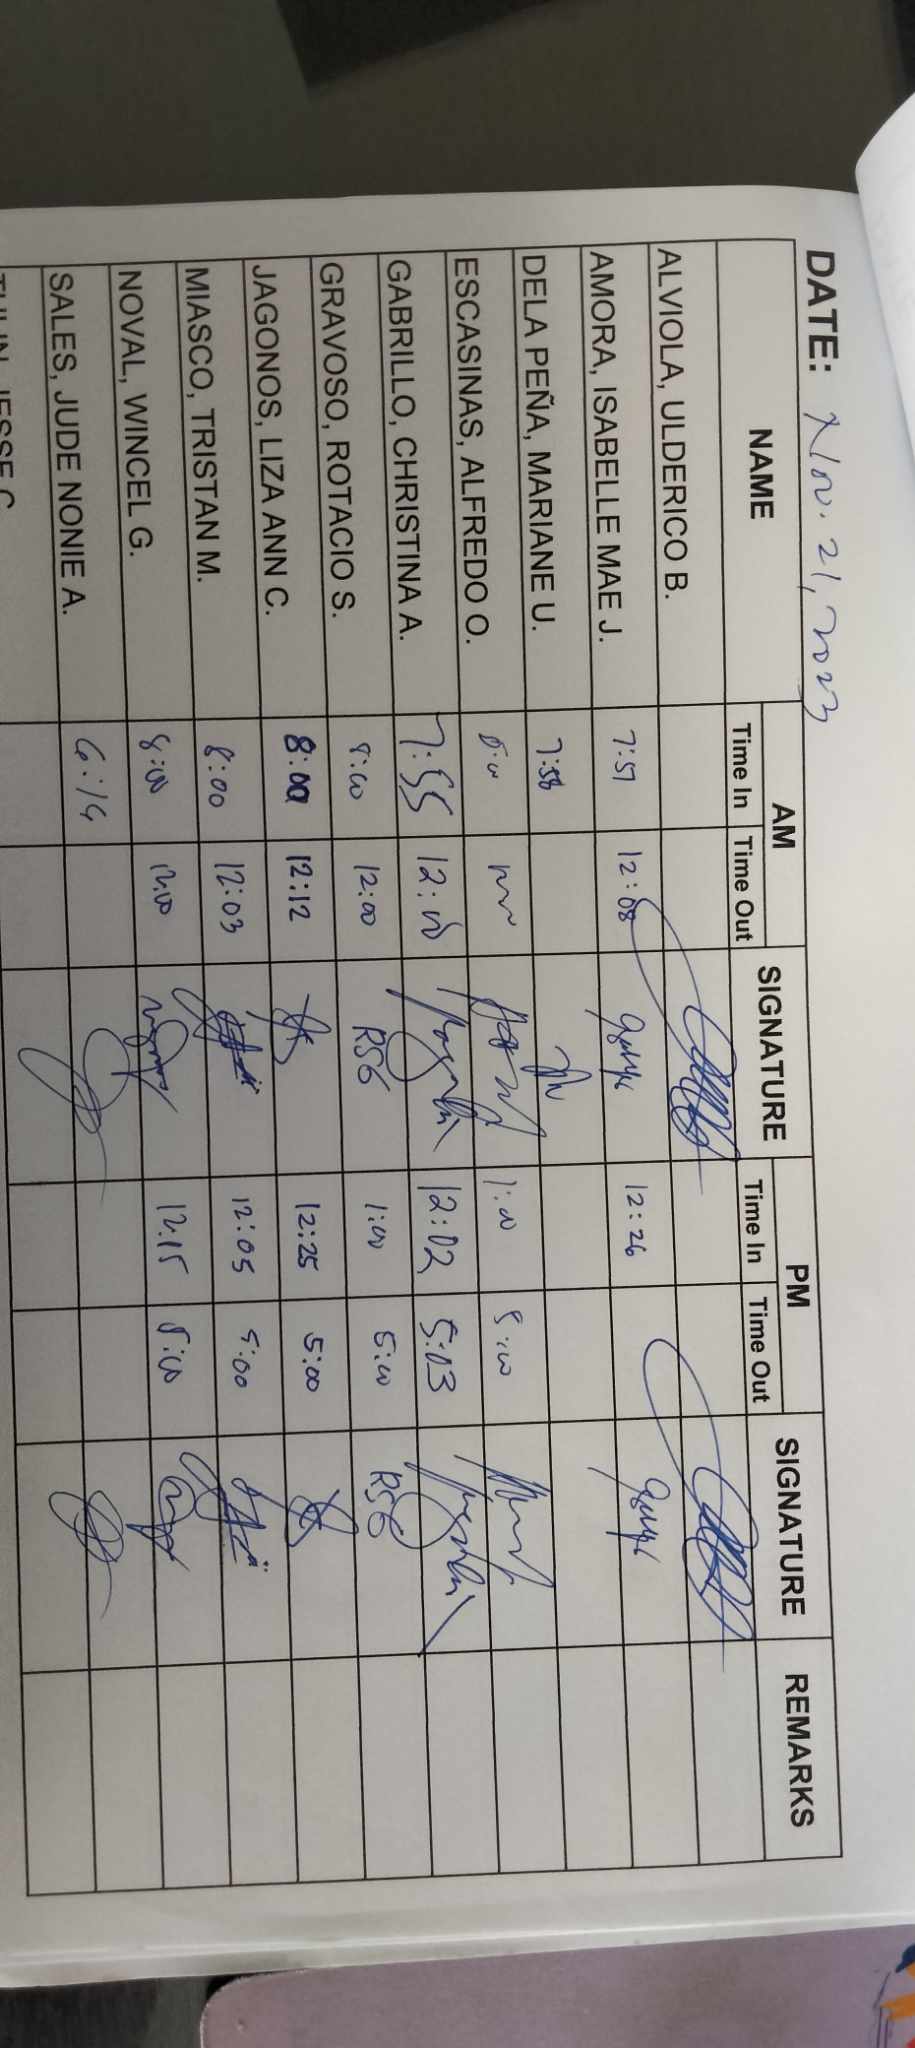 DATE: Nov. 21, 2023
NAME AM SIGNATURE PM SIGNATURE REMARKS
Time In Time Out Time In Time Out
ALVIOLA, ULDERICO B.
AMORA, ISABELLE MAE J. 7:57 12:08 12:26
DELA PEÑA, MARIANE U. 7:58
ESCASINAS, ALFREDO O. 1:00
GABRILLO, CHRISTINA A. 7:55 12:02 5:03
GRAVOSO, ROTACIO S. 8:00 12:00 RSG 1:00 5:00 RSG
JAGONOS, LIZA ANN C. 8:00 12:12 12:25 5:00
MIASCO, TRISTAN M. 8:00 12:03 12:05 5:00
NOVAL, WINCEL G. 8:00 12:00 12:15 5:00
SALES, JUDE NONIE A. 6:14